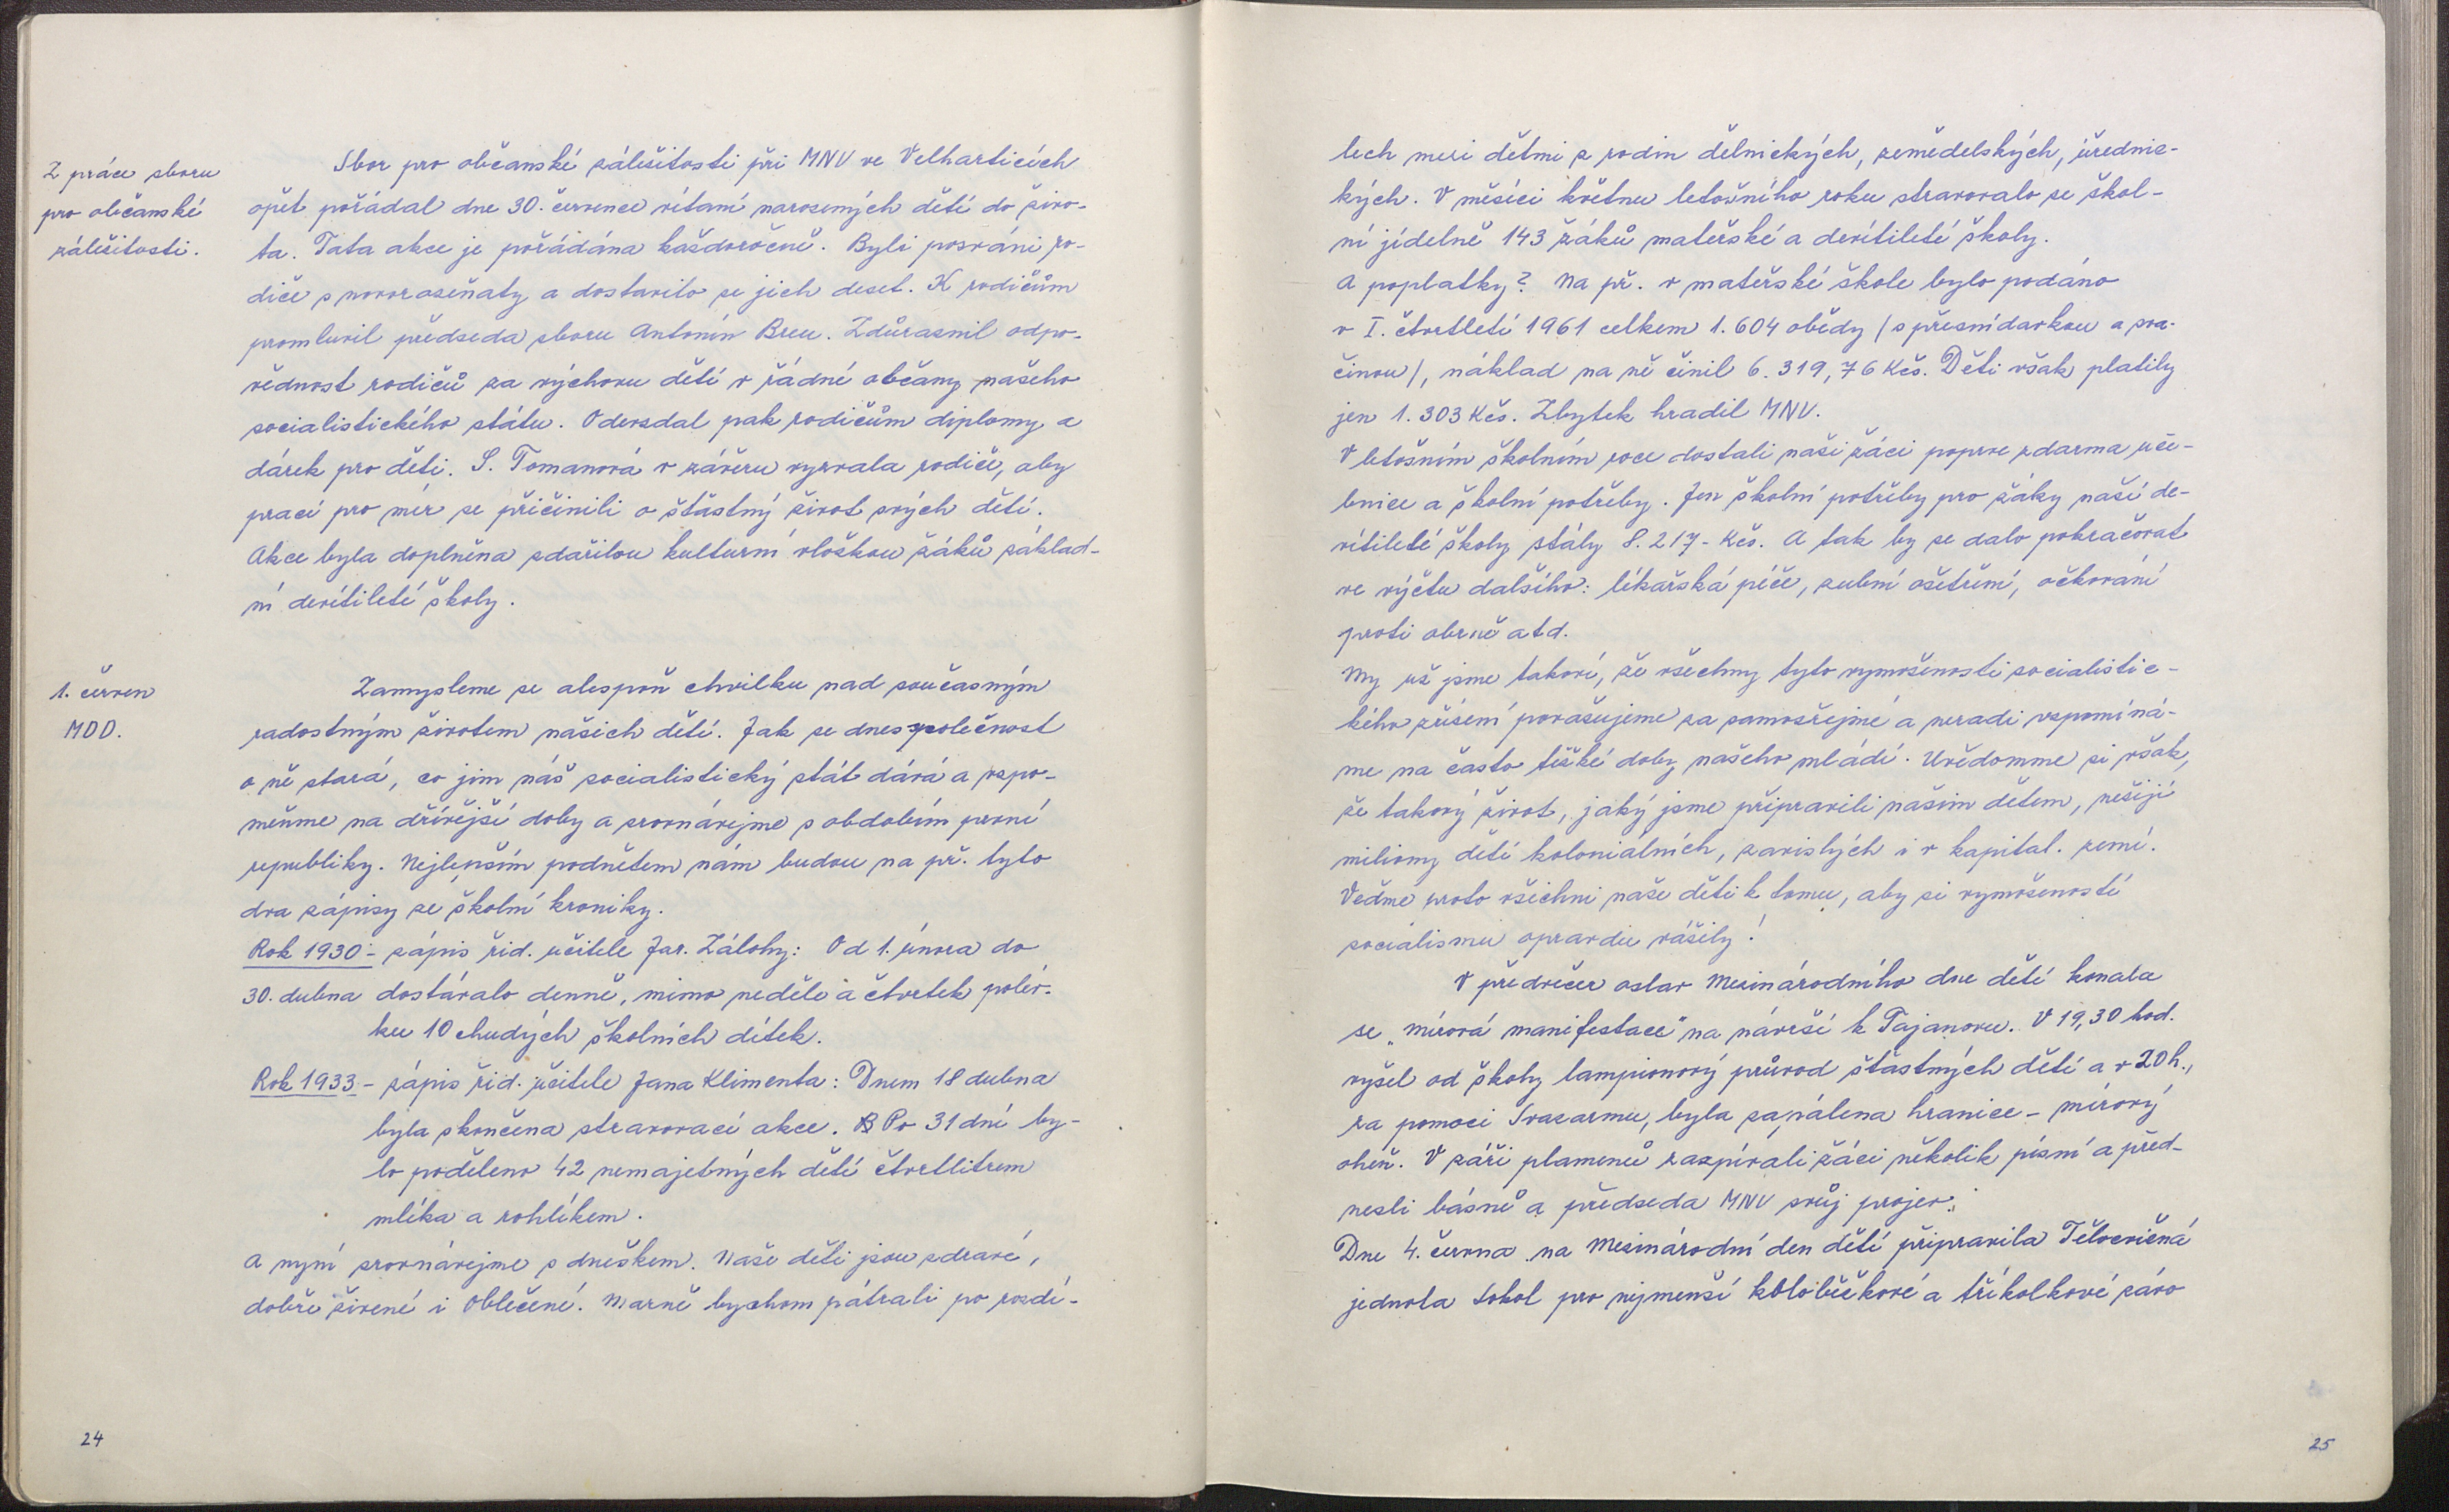 Z práce sboru
pro občanské
záležitosti.
Sbor pro občanské záležitosti při MNV ve Velharticích
opět pořádal dne 30. července vítaní narozených dětí do živo-
ta. Tata akce je pořádána každoročně. Byli pozváni ro-
diče s novorozeňaty a dostavilo se jich deset. K rodičům
promluvil předseda sboru Antonín Breu. Zdůraznil odpo-
vědnost rodičů za výchovu dětí v řádné občany našeho
socialistického státu. Odevzdal pak rodičům diplomy a
dárek pro děti. S. Tomanová v závěru vyzvala rodiče, aby
prací pro mír se přičinili o šťastný život svých dětí.
Akce byla doplněna zdařilou kulturní vložkou žáků základ-
ní devítileté školy.
1. červen
MDD.
Zamysleme se alespoň chvilku nad současným
radostným životem našich dětí. Jak se dnes společnost
o ně stará, co jim náš socialistický stát dává a vzpo-
meňme na dřívější doby a srovnávejme s obdobím první
republiky. Nejlepším podnětem nám budou na př. tyto
dva zápisy ze školní kroniky.
Rok 1930 - zápis říd. učitele Jar. Zálohy: Od 1. února do
30. dubna dostávalo denně, mimo neděle a čtvrtek polév-
ku 10 chudých školních dítek.
Rok 1933 - zápis říd. učitele Jana Klimenta: Dnem 18 dubna
byla skončena stravovací akce. Po 31 dní by-
lo poděleno 42 nemajetných dětí čtvrtlitrem
mléka a rohlíkem.
A nyní srovnávejme s dneškem. Naše děti jsou zdravé,
dobře živené i oblečené. Marně bychom pátrali po rozdí-
24
lech mezi dětmi z rodin dělnických, zemědelských, úřednic-
kých. V měsíci květnu letošního roku stravovalo se škol-
ní jídelně 143 žáků mateřské a devítileté školy.
A poplatky? Na př. v mateřské škole bylo podáno
v I. čtvrtletí 1961 celkem 1.604 obědy /s přesnídavkou a sva-
činou/, náklad na ně činil 6.319,76 Kčs. Děti však platily
jen 1.303 Kčs. Zbytek hradil MNV.
V letošním školním roce dostali naši žáci poprve zdarma uče-
bnice a školní potřeby. Jen školní potřeby pro žáky naší de-
vítileté školy stály 8.217- Kčs. A tak by se dalo pokračovat
ve výčtu dalšího: lékařská péče, zubní ošetření, očkování
proti obrně atd.
My už jsme takoví, že všechny tyto vymoženosti socialistic-
kého zřízení považujeme za samozřejmé a neradi vzpomíná-
me na často těžké doby našeho mládí. Uvědomme si však,
že takový život, jaký jsme připravili našim dětem, nežijí
miliony dětí koloniálních, zavislých i v kapital. zemí.
Veďme proto všichni naše děti k tomu, aby si vymožeností
socialismu opravdu vážily!
V předvečer oslav Mezinárodního dne dětí konala
se "mírová manifestace" na návrší k Tajanovu. V 19,30 hod.
vyšel od školy lampionový průvod šťastných dětí a v 20 h.,
za pomoci Svazarmu, byla zapálena hranice - mírový
oheň. V záři plamenů zazpívali žáci několik písní a před-
nesli básně a předseda MNV svůj projev.
Dne 4. června na Mezinárodní den dětí připravila Tělocvičná
jednota Sokol pro nejmenší koloběžkové a tříkolkové závo
25